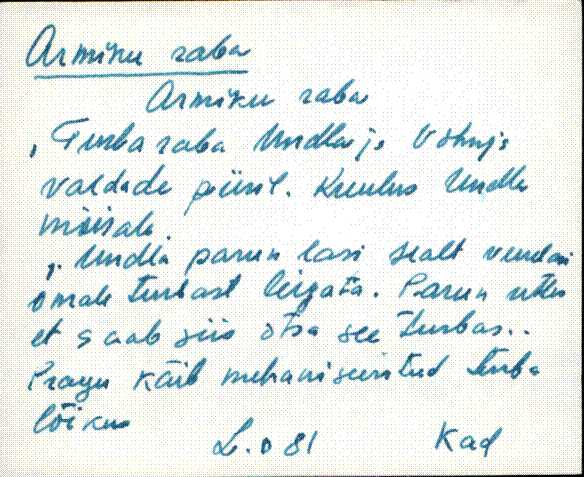 Armiku raba
Armiku raba
, Turba raba Undla ja Võhnja
valdade piiril. Kuulus Undla
mõisale.
,, Undla parun lasi sealt
omale turbast leigata. Parun ütles
et saab siis otsa see turbas..
Praegu käib mehaniseeritud turba
lõikus
L. 81 Kad